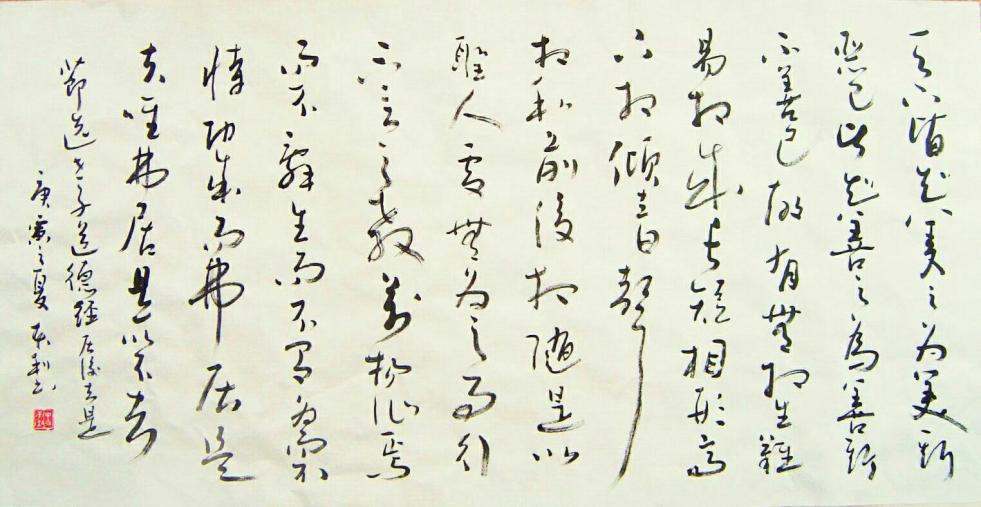 天下皆知美之为美斯
恶已皆知善之為善斯
不善已故有無相生難
易相成長短相形高
下相傾音聲
相和前後相随是以
聖人處無为之事行
不言之教萬物作焉
而不辞生而不有為而不
恃功成而弗居
夫唯弗居是以不去
節选老子道德經
庚寅之夏